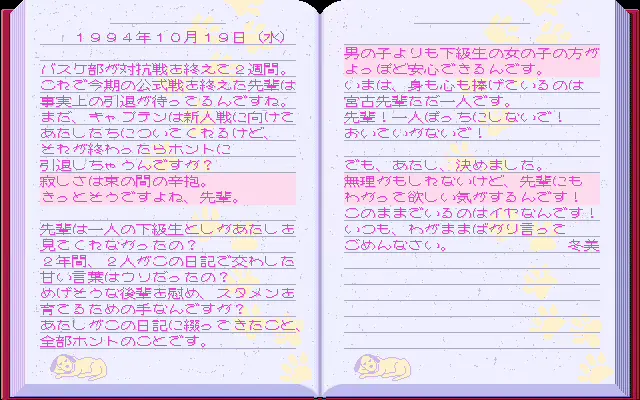 １９９４年１０月１９日（水）
バスケ部が対抗戦を終えて２週間。
これで今期の公式戦を終えた先輩は
事実上の引退が待ってるんですね。
まだ、キャプテンは新人戦に向けて
あたしたちについてくれるけど、
それが終わったらホントに
引退しちゃうんですか？
寂しさは束の間の辛抱。
きっとそうですよね、先輩。
先輩は一人の下級生としかあたしを
見てくれなかったの？
２年間、２人がこの日記で交わした
甘い言葉はウソだったの？
めげそうな後輩を慰め、スタメンを
育てるための手なんですか？
あたしがこの日記に綴ってきたこと、
全部ホントのことです。
男の子よりも下級生の女の子の方が
よっぽど安心できるんです。
いまは、身も心も捧げているのは
宮古先輩ただ一人です。
先輩！一人ぼっちにしないで！
おいていかないで！
でも、あたし、決めました。
無理かもしれないけど、先輩にも
わかって欲しい気がするんです！
このままでいるのはイヤなんです！
いつも、わがままばかり言って
ごめんなさい。　　　　　　　　冬美